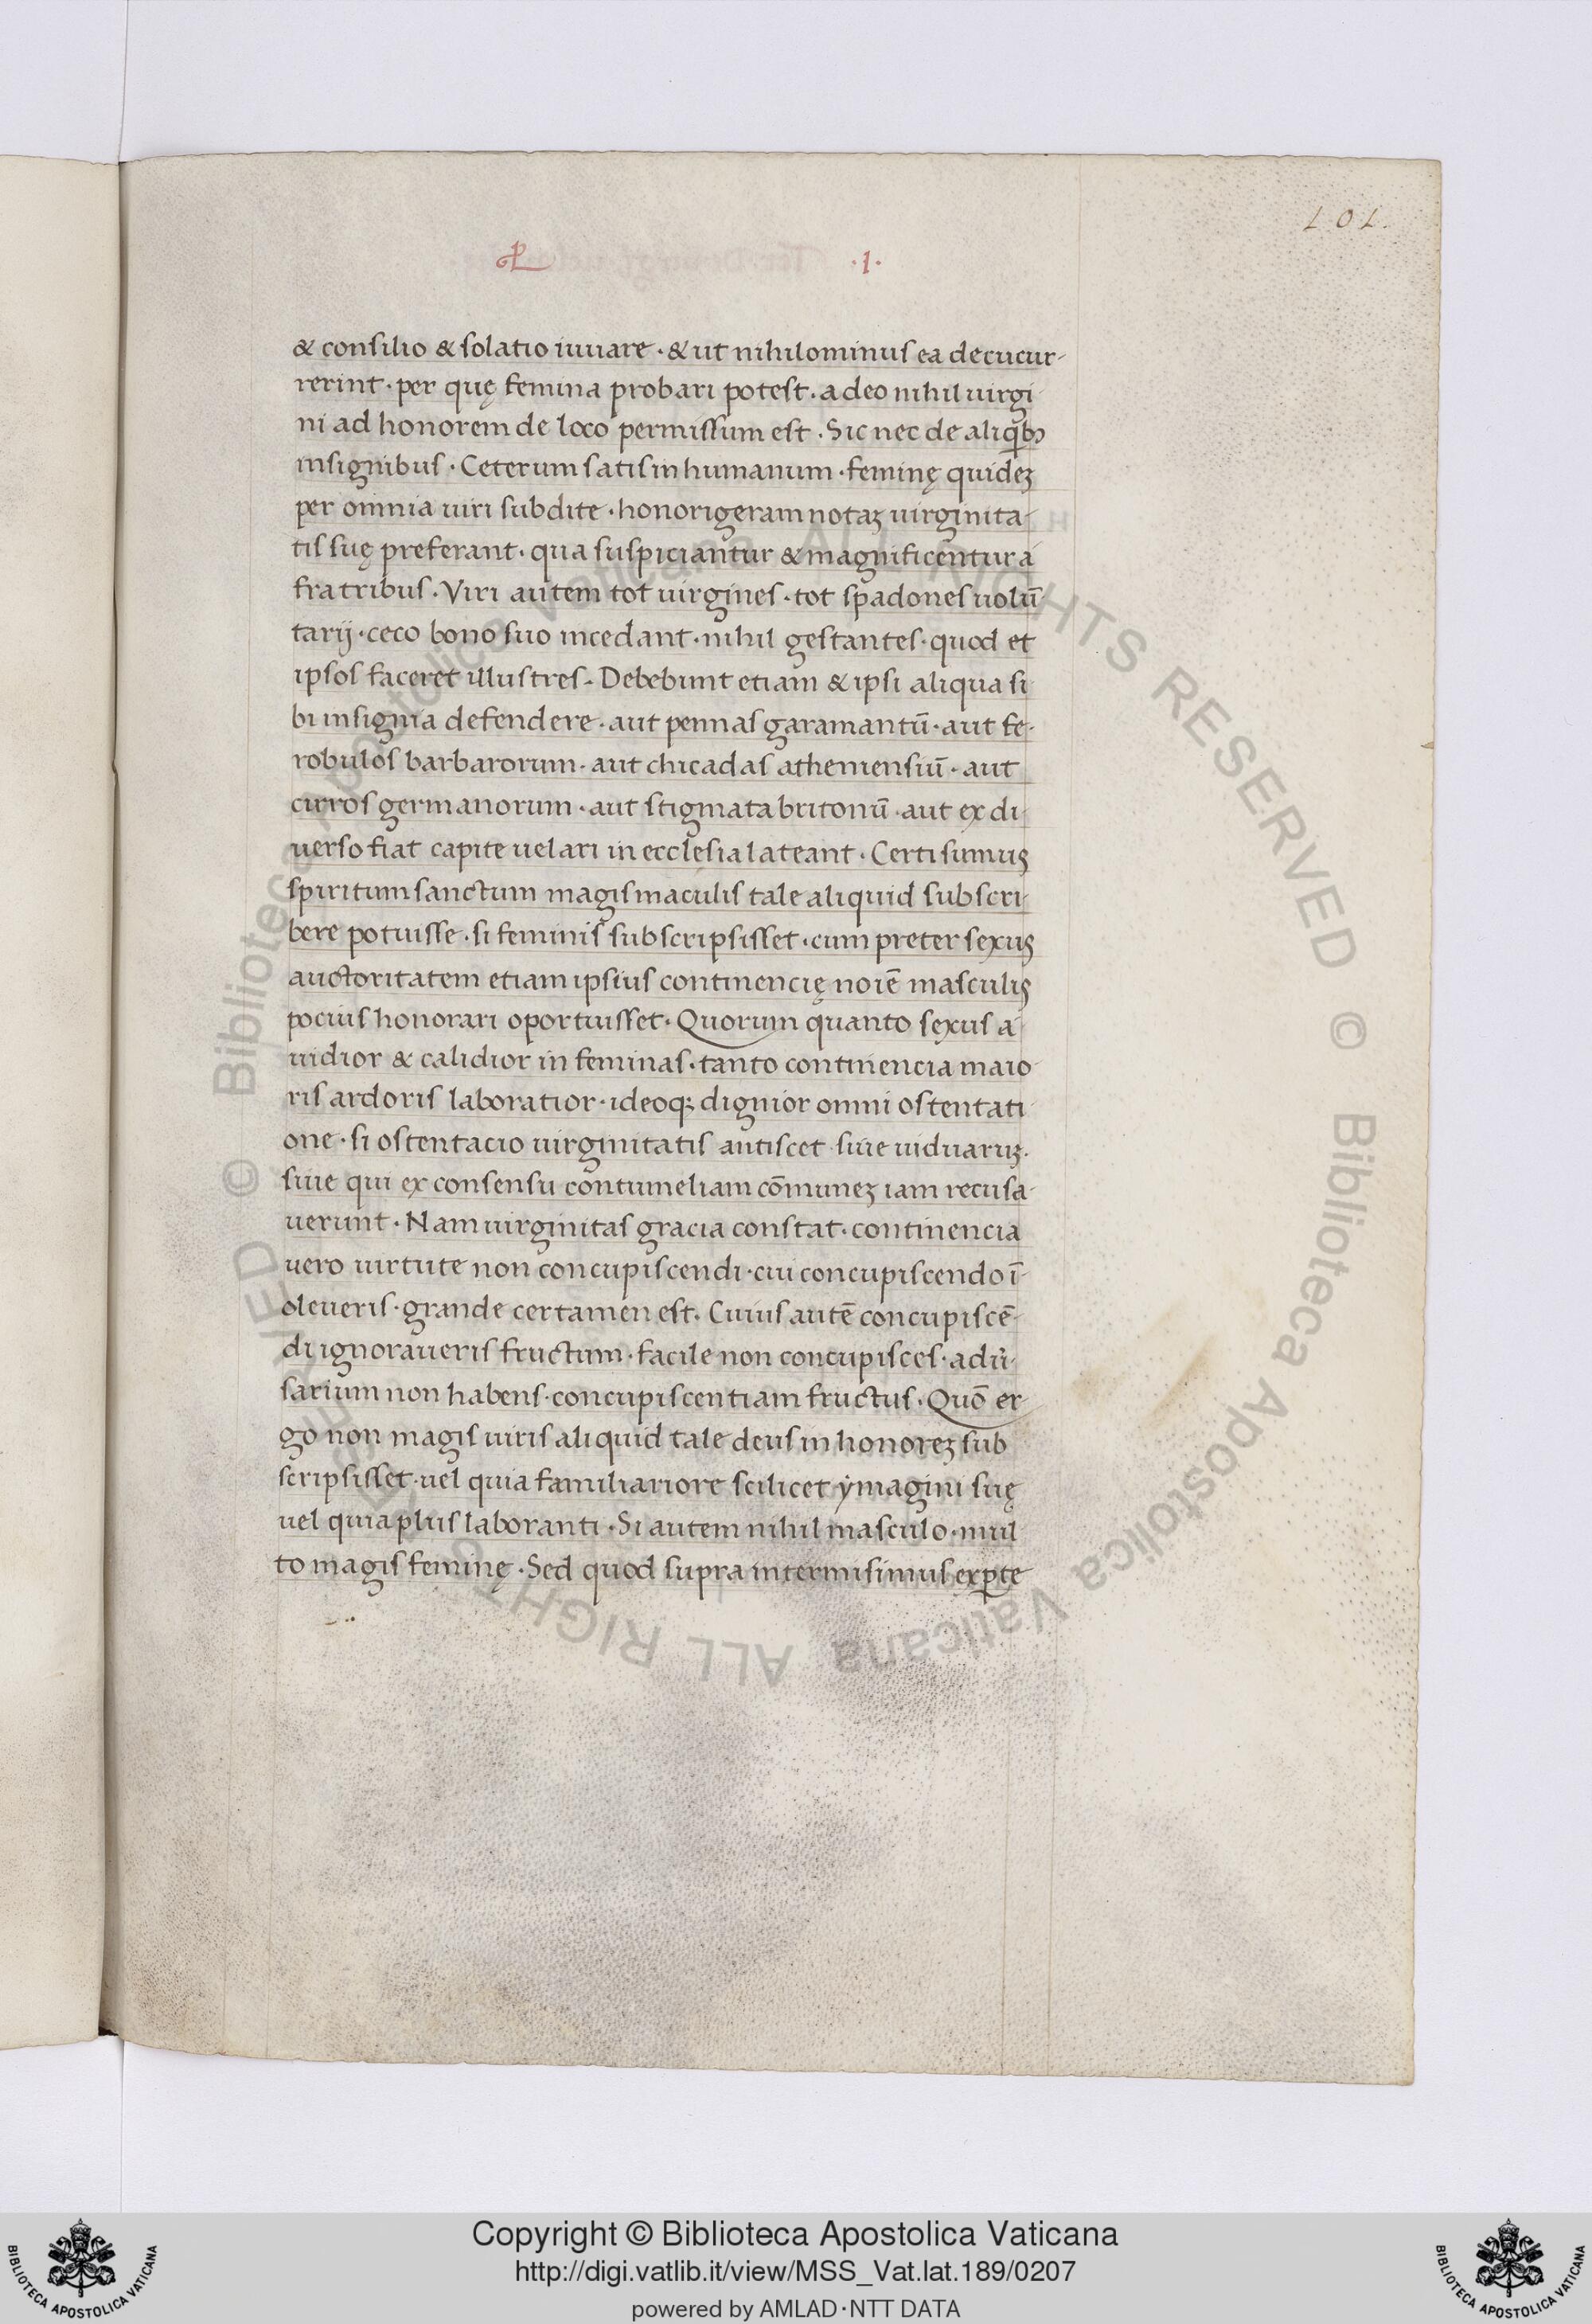 101.
.1.
& consilio & solatio iuuare · & ut nihilominus ea decucur-
rerint · per quę femina probari potest · adeo nihil uirgi
ni ad honorem de loco permissum est . Sic nec de aliqbꝫ
insignibus · Ceterum satis inhumanum · feminę quideꝫ
per omnia uiri subdite · honorigeram notaꝫ uirginita-
tis suę preferant · qua suspiciantur & magnificentur a
fratribus . Viri autem tot uirgines · tot spadones uolū
tarij · ceco bono suo incedant · nihil gestantes · quod et
ipsos faceret illustres . Debebunt etiam & ipsi aliqua si
bi insignia defendere · aut pennas garamantū · aut fe-
robulos barbarorum · aut chicadas atheniensiū · aut
cirros germanorum · aut stigmata britonū · aut ex di
uerso fiat capite uelari in ecclesia lateant . Certi sumus
spiritum sanctum magis maculis tale aliquid subscri-
bere potuisse · si feminis subscripsisset · cum preter sexus
auctoritatem etiam ipsius continencię noiē masculis
pocius honorari oportuisset · Quorum quanto sexus a
uidior & calidior in feminas · tanto continencia maio
ris ardoris laboratior · ideoqꝫ dignior omni ostentati
one · si ostentacio uirginitatis antiscet siue uiduaruꝫ ·
siue qui ex consensu contumeliam cōmuneꝫ iam recusa-
uerunt · Nam uirginitas gracia constat · continencia
uero uirtute non concupiscendi · cui concupiscendo ī-
oleueris · grande certamen est . Cuius autē concupiscē-
di ignoraueris fructum · facile non concupisces · adu̇-
sarium non habens · concupiscentiam fructus . Quō er
go non magis uiris aliquid tale deus in honoreꝫ sub
scripsisset · uel quia familiariore scilicet ẏmagini suę
uel quia plus laboranti · Si autem nihil masculo · mul
to magis feminę · Sed quod supra intermisimus ex ꝑte
© Biblioteca Apostolica Vaticana ALL RIGHTS RESERVED © Biblioteca Apostolica Vaticana ALL RIGHTS RESERVED
Copyright © Biblioteca Apostolica Vaticana
http://digi.vatlib.it/view/MSS_Vat.lat.189/0207
powered by AMLAD·NTT DATA
BIBLIOTECA APOSTOLICA VATICANA
BIBLIOTECA APOSTOLICA VATICANA